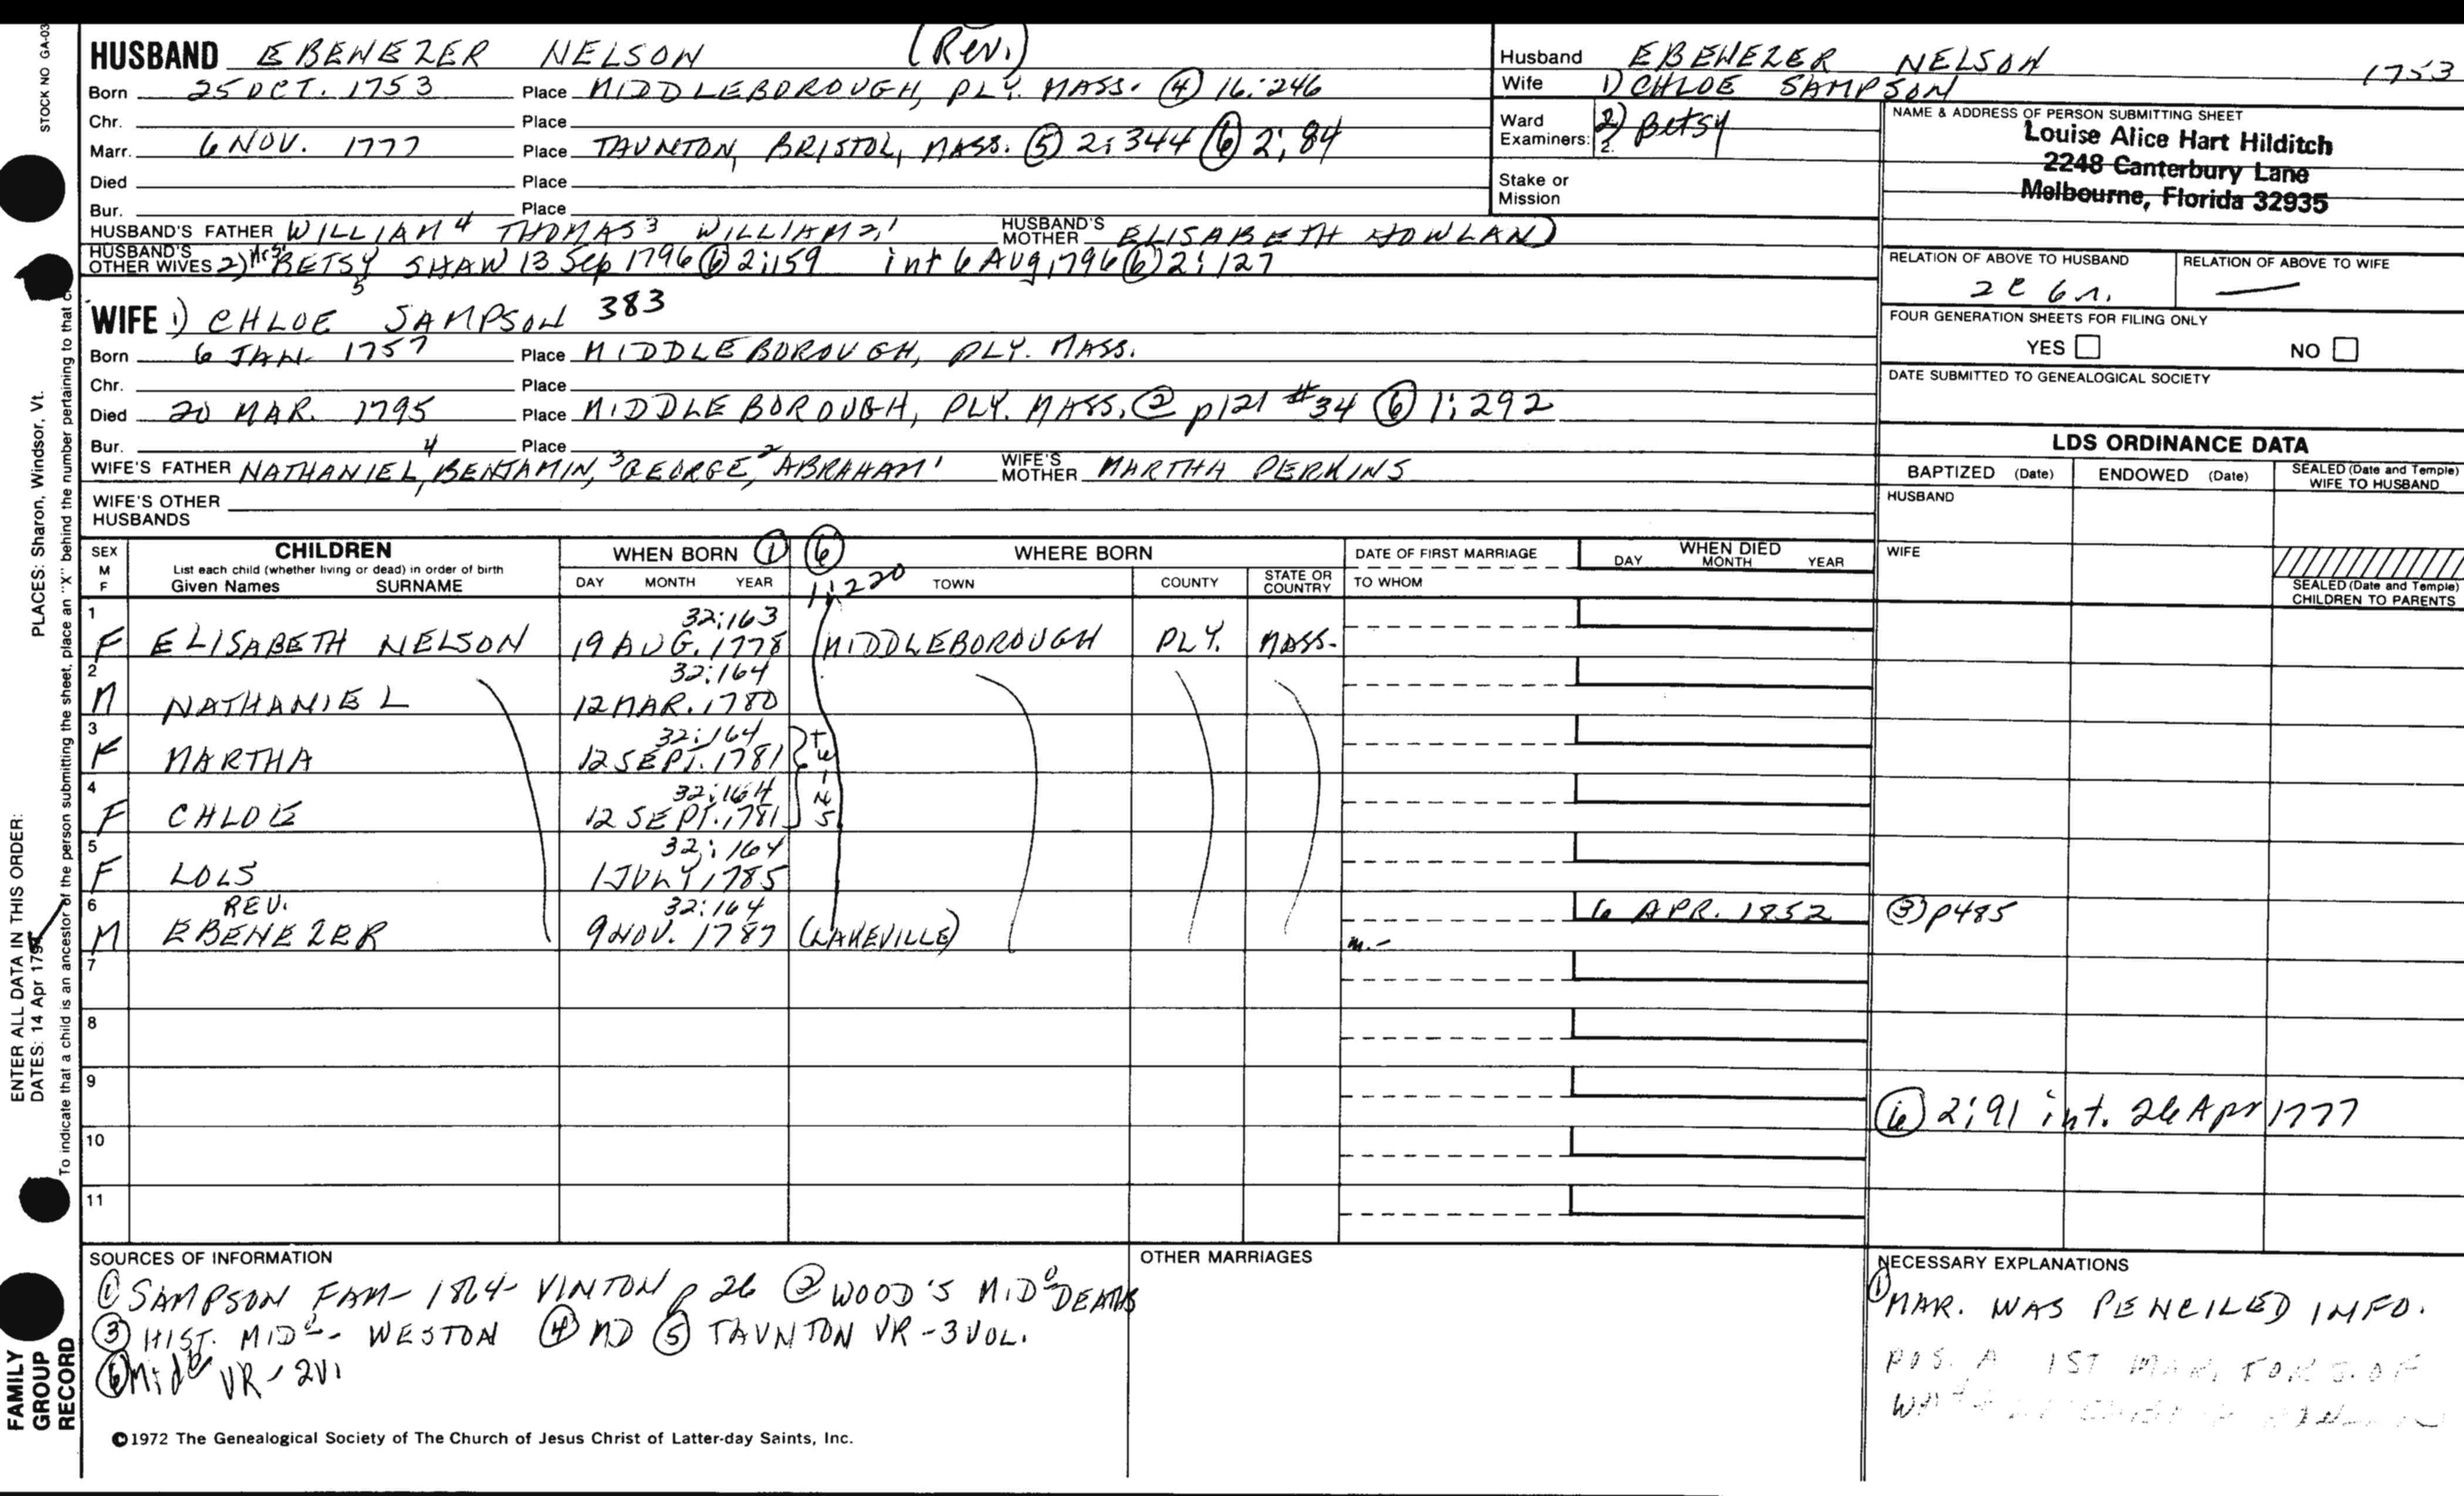 HUSBAND EBENEZER NELSON (Rev.)
Born 25 OCT. 1753 Place MIDDLEBOROUGH, PLY. MASS. ④ 16:246
Chr. Place
Marr. 6 NOV. 1777 Place TAUNTON, BRISTOL, MASS. ⑤ 2:344 ⑥ 2:84
Died Place
Bur. Place
HUSBAND'S FATHER WILLIAM 4 THOMAS 3 WILLIAM 2,1 HUSBAND'S MOTHER ELISABETH HOWLAND
HUSBAND'S OTHER WIVES 2) Mrs. BETSY SHAW 13 Sep 1796 ⑥ 2:159 int 6 AUG 1796 ⑥ 2:127
WIFE 1) CHLOE 5 SAMPSON 383
Born 6 JAN. 1757 Place MIDDLEBOROUGH, PLY. MASS.
Chr. Place
Died 20 MAR. 1795 Place MIDDLEBOROUGH, PLY. MASS. ② p121 #34 ⑥ 1:292
Bur. Place
WIFE'S FATHER NATHANIEL 4, BENJAMIN, 3 GEORGE, 2 ABRAHAM 1 WIFE'S MOTHER MARTHA PERKINS
WIFE'S OTHER HUSBANDS
Husband EBENEZER NELSON 1753
Wife 1) CHLOE SAMPSON
Ward
Examiners: 2) Betsy
2.
Stake or
Mission
NAME & ADDRESS OF PERSON SUBMITTING SHEET
Louise Alice Hart Hilditch
2248 Canterbury Lane
Melbourne, Florida 32935
RELATION OF ABOVE TO HUSBAND RELATION OF ABOVE TO WIFE
2 C 6 r. —
FOUR GENERATION SHEETS FOR FILING ONLY
YES NO
DATE SUBMITTED TO GENEALOGICAL SOCIETY
LDS ORDINANCE DATA
BAPTIZED (Date) ENDOWED (Date) SEALED (Date and Temple) WIFE TO HUSBAND
HUSBAND
WIFE
SEALED (Date and Temple) CHILDREN TO PARENTS
SEX M F CHILDREN WHEN BORN ① ⑥ 1:220 WHERE BORN DATE OF FIRST MARRIAGE WHEN DIED
List each child (whether living or dead) in order of birth
Given Names SURNAME DAY MONTH YEAR TOWN COUNTY STATE OR COUNTRY TO WHOM DAY MONTH YEAR
1 32:163
F ELISABETH NELSON 19 AUG. 1778 MIDDLEBOROUGH PLY. MASS.
2 32:164
M NATHANIEL 12 MAR. 1780
3 32:164
F MARTHA 12 SEPT. 1781 TWINS
4 32:164
F CHLOE 12 SEPT. 1781
5 32:164
F LOIS 1 JULY 1785
6 REV. 32:164 6 APR. 1852 ③ p485
M EBENEZER 9 NOV. 1787 (LAKEVILLE) m.-
7
8
9
⑥ 2:91 int. 26 Apr 1777
10
11
SOURCES OF INFORMATION
① SAMPSON FAM - 1864 - VINTON p 26 ② WOOD'S MIDo DEATHS
③ HIST. MIDo - WESTON ④ MD ⑤ TAUNTON VR - 3 VOL.
⑥ Midb VR - 2V1
OTHER MARRIAGES
NECESSARY EXPLANATIONS
① MAR. WAS PENCILED INFO.
POS. A 1ST MAR. FOR S. OF
©1972 The Genealogical Society of The Church of Jesus Christ of Latter-day Saints, Inc.
STOCK NO GA-03
PLACES: Sharon, Windsor, Vt.
ENTER ALL DATA IN THIS ORDER:
DATES: 14 Apr 1794
To indicate that a child is an ancestor of the person submitting the sheet, place an "X" behind the number pertaining to that c
FAMILY
GROUP
RECORD